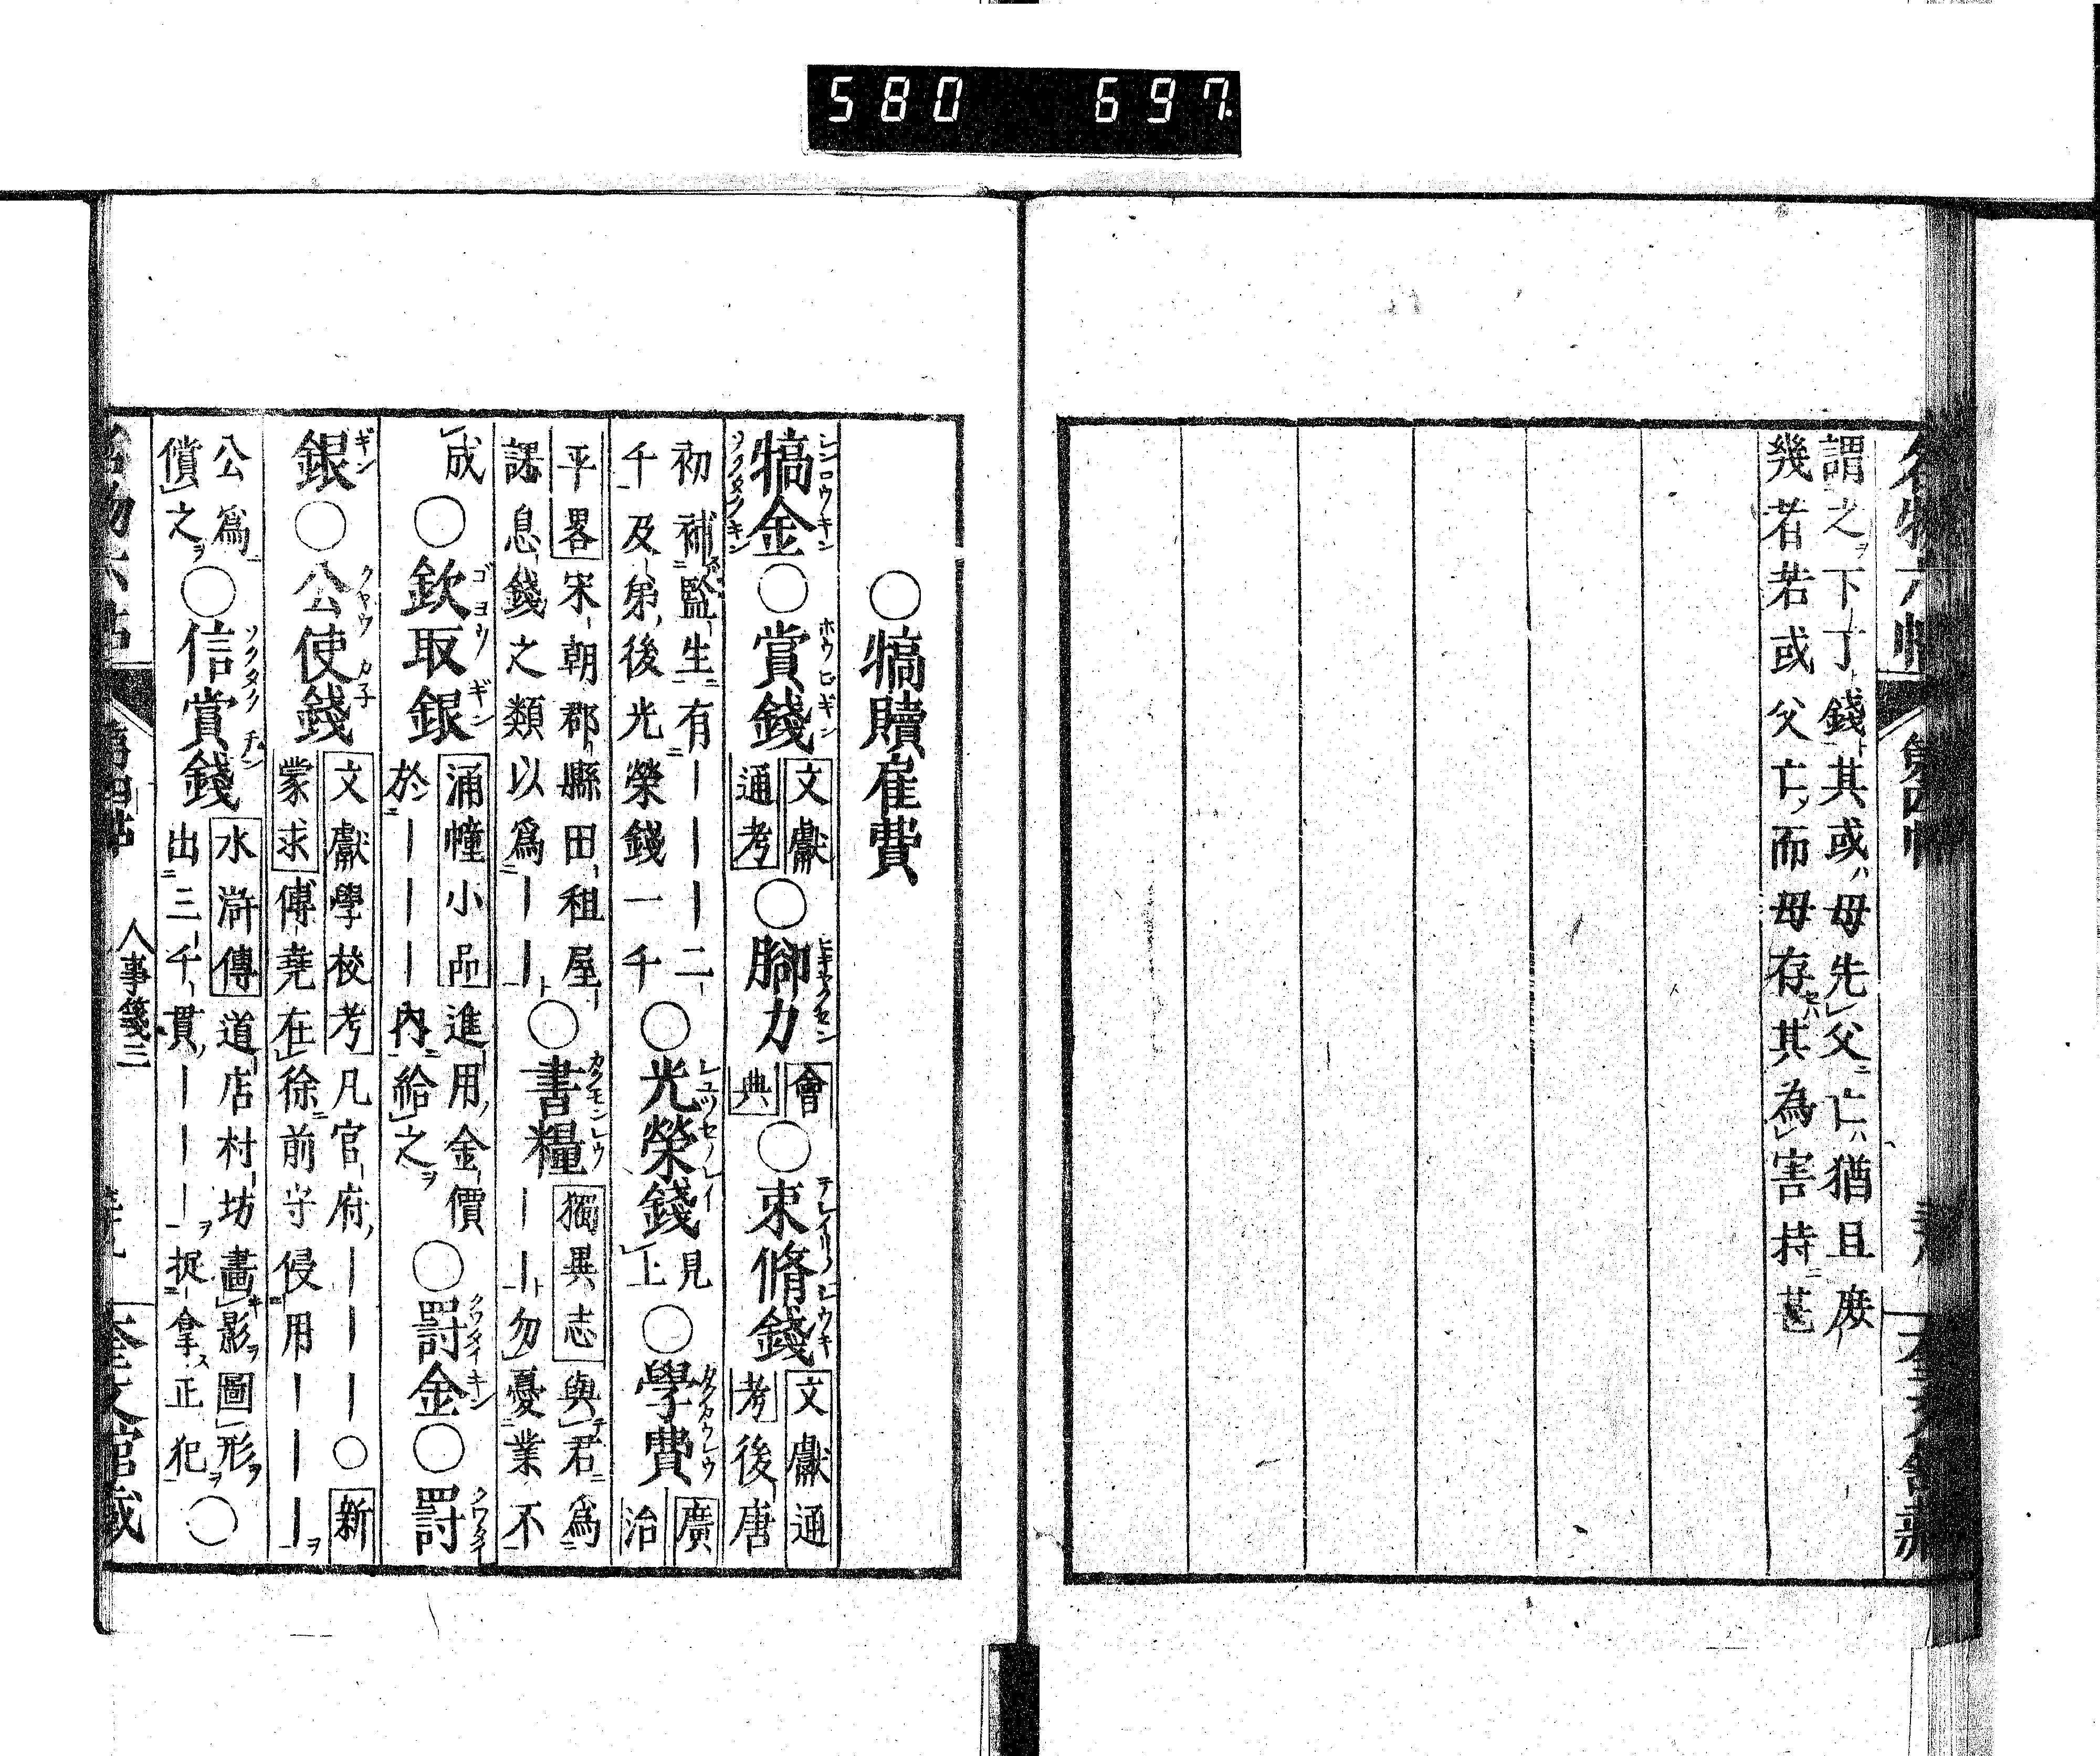 580 697
名物六帖 第四帖
謂之下丁錢其或母先父亡猶且庶
幾者若或父亡而母存其為害持甚
○犒贖雇費
犒金○賞錢 文獻通考 ○腳力 會典 ○束脩錢 文獻通考 後唐
初補監生有｜｜｜二
千及第後光榮錢一千 ○光榮錢 見上 ○學費 廣治
平畧 宋朝郡縣田租屋
課息錢之類以為｜｜ ○書糧 獨異志 與君為｜｜勿憂業不
成 ○欽取銀 涌幢小品 進用金價於｜｜｜內給之 ○罰金○罰
銀○公使錢 文獻學校考 凡官府｜｜｜○新
蒙求 傅堯在徐前守侵用｜｜｜
公為
償之 ○信賞錢 水滸傳 道店村坊畫影圖形
出三千貫｜｜｜捉拿正犯 ○
第四帖 人事箋三 奎文館藏